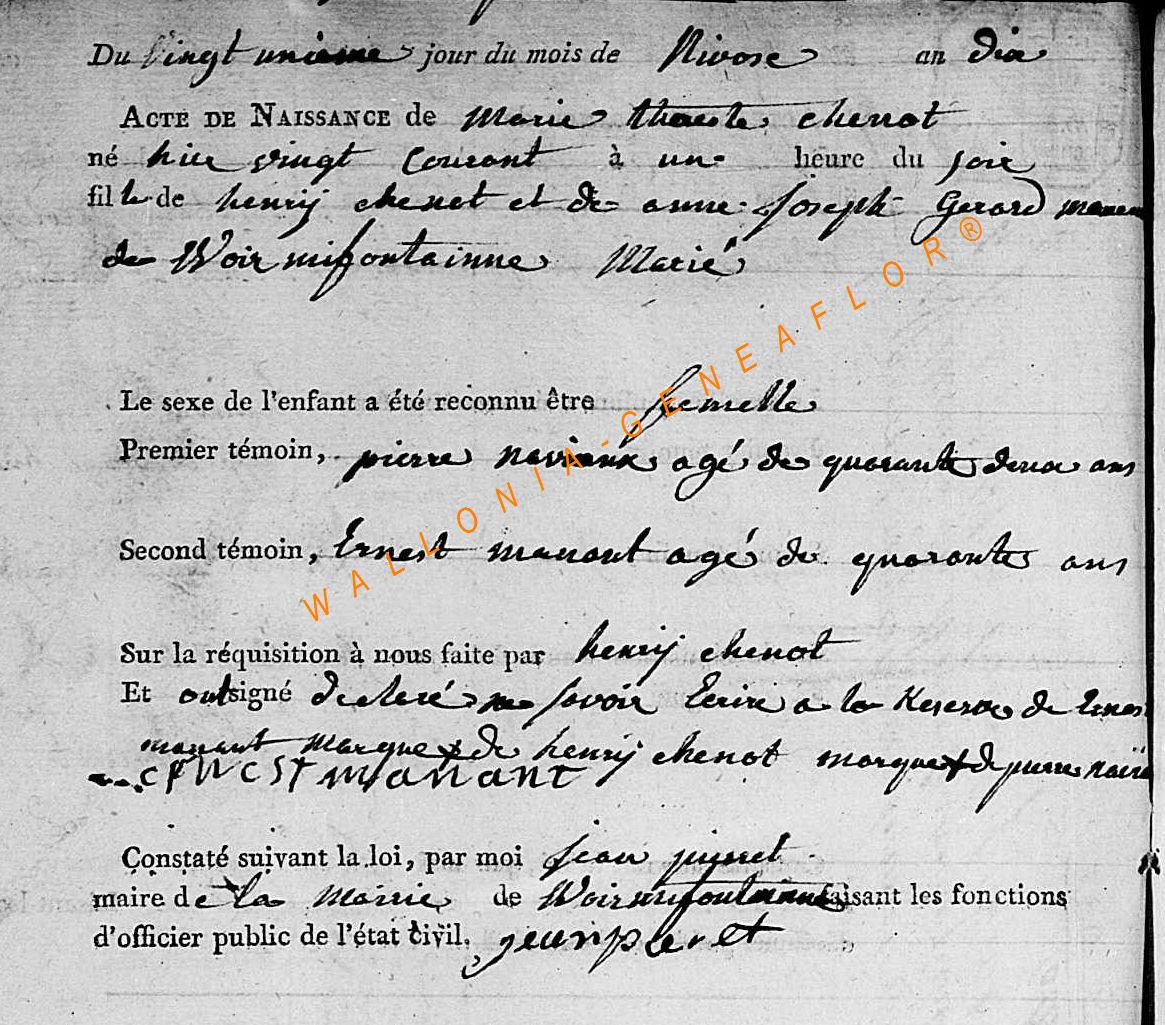 Du Vingt unieme jour du mois de Nivose an dix
ACTE DE NAISSANCE de marie therese chenot
né hier vingt Courant à une heure du soir
fille de henrij chenot et de anne Joseph Gerard
de Woirmifontainne Marié
Le sexe de l'enfant a été reconnu être femelle
Premier témoin, pierre agé de quarante deux ans
Second témoin, Ernest manant agé de quarante ans
Sur la réquisition à nous faite par henrij chenot
Et ont signé declaré ne savoir Ecrire a la Reserve de Ernest
manant marque x de henrij chenot marque x de pierre
manant
Constaté suivant la loi, par moi jean
maire de la Mairie de Woirmifontainne faisant les fonctions
d'officier public de l'état civil.
WALLONIA-GENEAFLOR ®